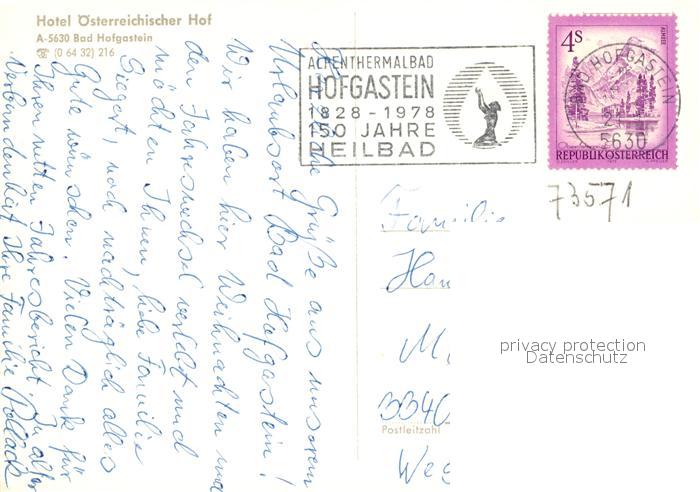 Hotel Österreichischer Hof
A-5630 Bad Hofgastein
☎ (0 64 32) 216
ALPENTHERMALBAD
HOFGASTEIN
1828-1978
150 JAHRE
HEILBAD
4S
ALMSEE
REPUBLIK ÖSTERREICH
BAD HOFGASTEIN
5630
73571
Herzliche Grüße aus unserem
Urlaubsort Bad Hofgastein!
Wir haben hier Weihnachten und
den Jahreswechsel verlebt und
möchten Ihnen, liebe Familie
Siegert, noch nachträglich alles
Gute wünschen. Vielen Dank für
Ihren netten Jahresbericht. In alter
Verbundenheit Ihre Familie Pollack
Familie
Han
M
3340
Postleitzahl
Weg
privacy protection
Datenschutz